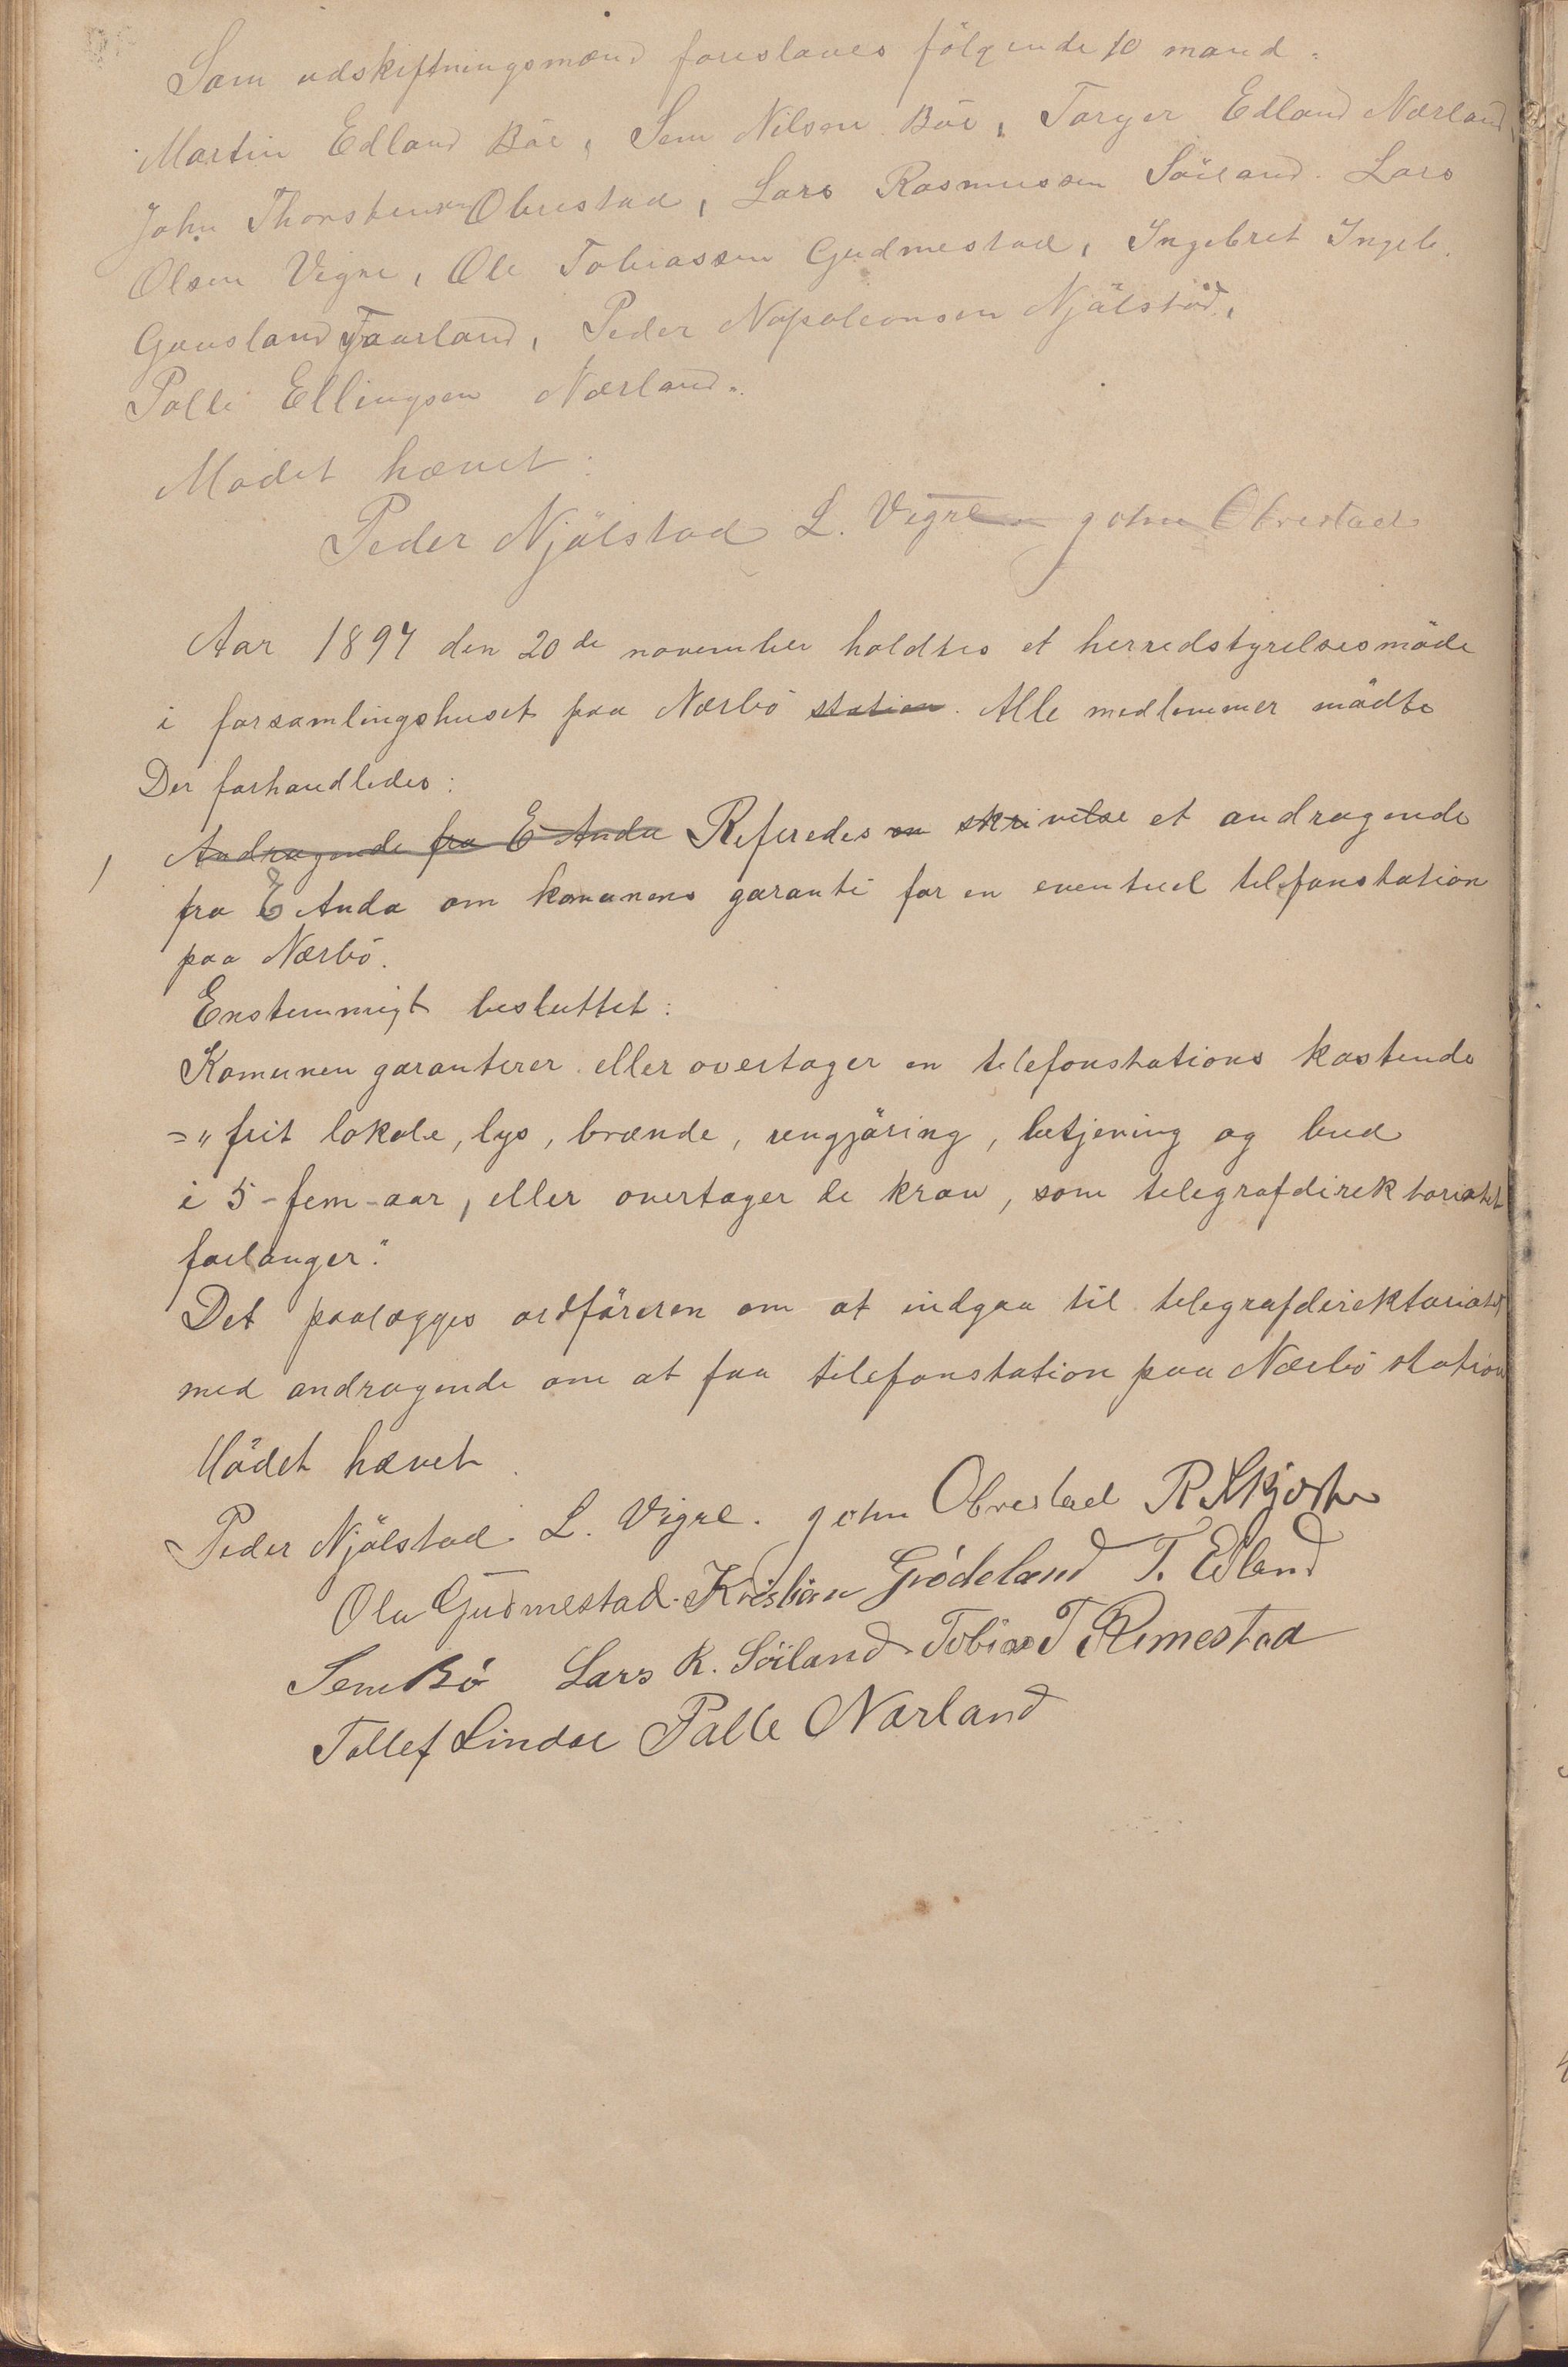 Som udskiftningsmænd foreslaaes fölgende 10 mænd:
Martin Edland Böe, Sem Nilsen Böe, Torger Edland Nærland,
John Thorstensen Obrestad, Lars Rasmussen Söiland. Lars
Olsen Vigre, Ole Tobiassen Gudmestad, Ingebret Ingeb.
Gausland Taarland, Peder Napoleonsen Njölstad,
Palle Ellingsen Nærland.
Mödet hævet:
Peder Njölstad L. Vigre John Obrestad
Aar 1897 den 20de november holdtes et herredstyrelsesmöde
i forsamlingshuset paa Nærbö station. Alle medlemmer mödte
Der forhandledes:
1 Andragende fra E Anda Referedes en skrivelse et andragende
fra E Anda om komunens garanti for en eventuel telefonstation
paa Nærbö.
Enstemmigt besluttet:
Komunen garanterer eller overtager en telefonstations kostende
=" frit lokale, lys, brænde, rengjöring, betjening og bud
i 5-fem-aar, eller overtager de krav, som telegrafdirektoriatet
forlanger."
Det paalægges ordföreren om at indgaa til telegrafdirektoriatet
med andragende om at faa telefonstation paa Nærbö station
Mödet hævet
Peder Njölstad. L. Vigre. John Obrestad R. Skjostu
Ola Gudmestad. Kristian Grödeland T. Edland
Sem Bö Lars R. Söiland Tobias T Rimestad
Tollef Lindal Palle Nærland